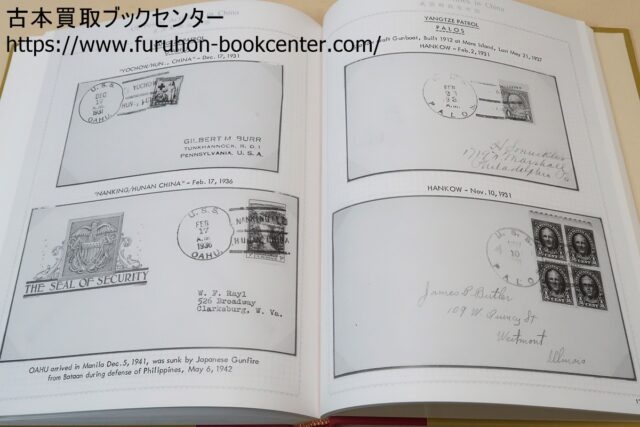 古本買取ブックセンター
https://www.furuhon-bookcenter.com/
in China
"YOCHOW/HUN., CHINA" – Dec. 17, 1931
U.S.S.
DEC
17
A.M.
1931
OAHU
YOCHOW
HUN., CHINA
GILBERT M. BURR
TUNKHANNOCK, R. D. 1
PENNSYLVANIA, U. S. A.
"NANKING/HUNAN CHINA" – Feb. 17, 1936
U.S.S.
FEB
17
A.M.
1936
OAHU.
NANKING
HUNAN CHINA
THE SEAL OF SECURITY
W. F. Rayl
526 Broadway
Clarksburg, W. Va.
OAHU arrived in Manila Dec. 5, 1941, was sunk by Japanese Gunfire
from Bataan during defense of Philippines, May 6, 1942
YANGTZE PATROL
PALOS
Gunboat, Built 1912 at Mare Island, Lan May 21, 1937
HANKOW – Feb. 2, 1931
FEB
PALOS
1719 N. Marshall
Philadelphia Pa
HANKOW – Nov. 10, 1931
U.S.S.
10
PALOS
James P. Butler
109 W. Quincy St
Westmont
Illinois